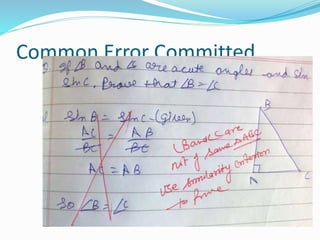 Common Error Committed
Q. If ∠B and ∠C are acute angles and Sin
Sin C, Prove that ∠B = ∠C
Sin B = Sin C (Given)
AC/BC = AB/BC
AC = AB
So ∠B = ∠C
B
A
C
(B and C are
not of same ΔABC
use similarity criterion
to prove